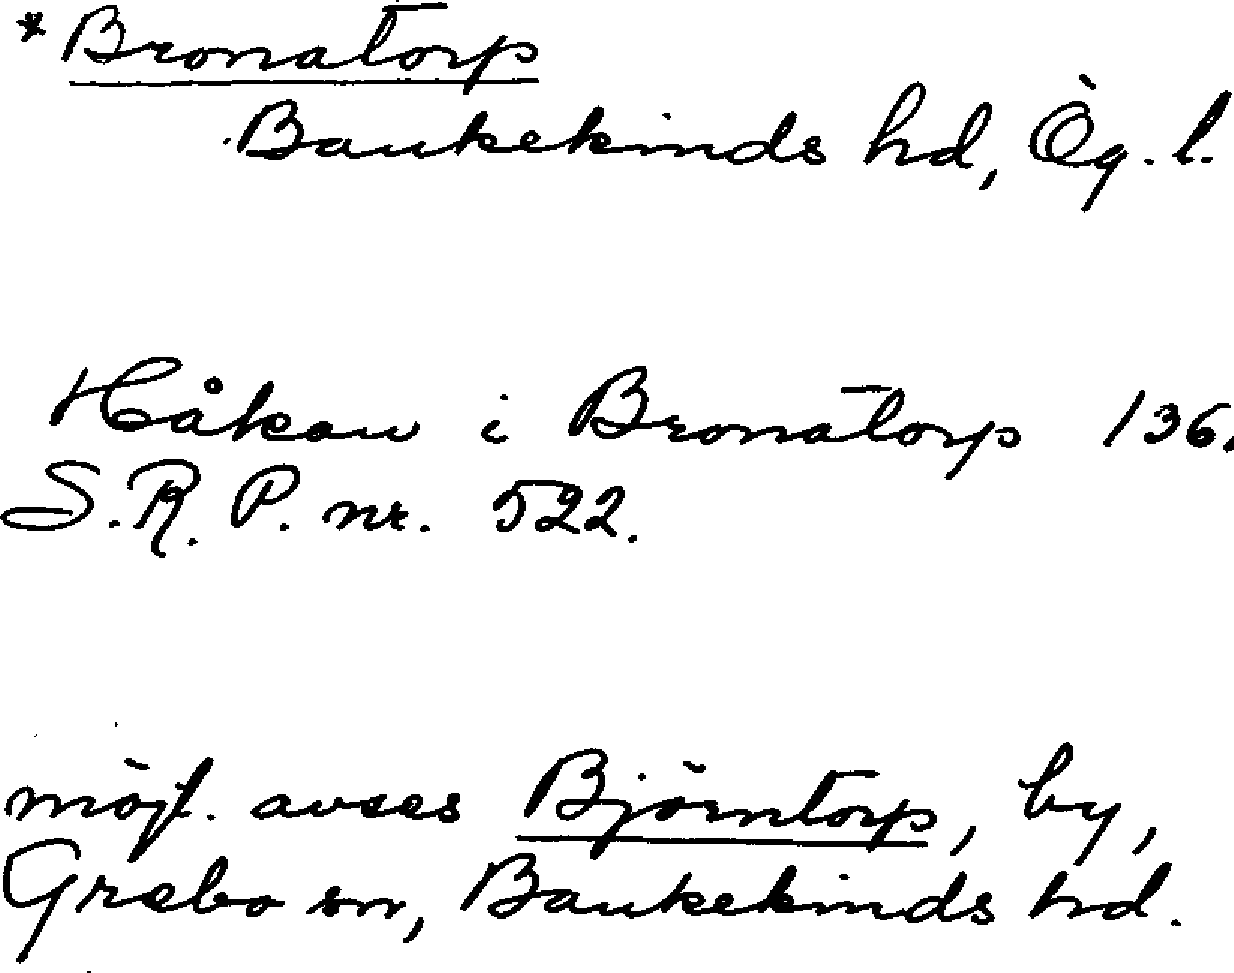 * Bronatorp
Bankekinds hd, Ög. l.
Håkan i Bronatorp 136.
S.R.P. nr. 522.
möjl. avses Björntorp, by,
Grebo sn, Bankekinds hd.